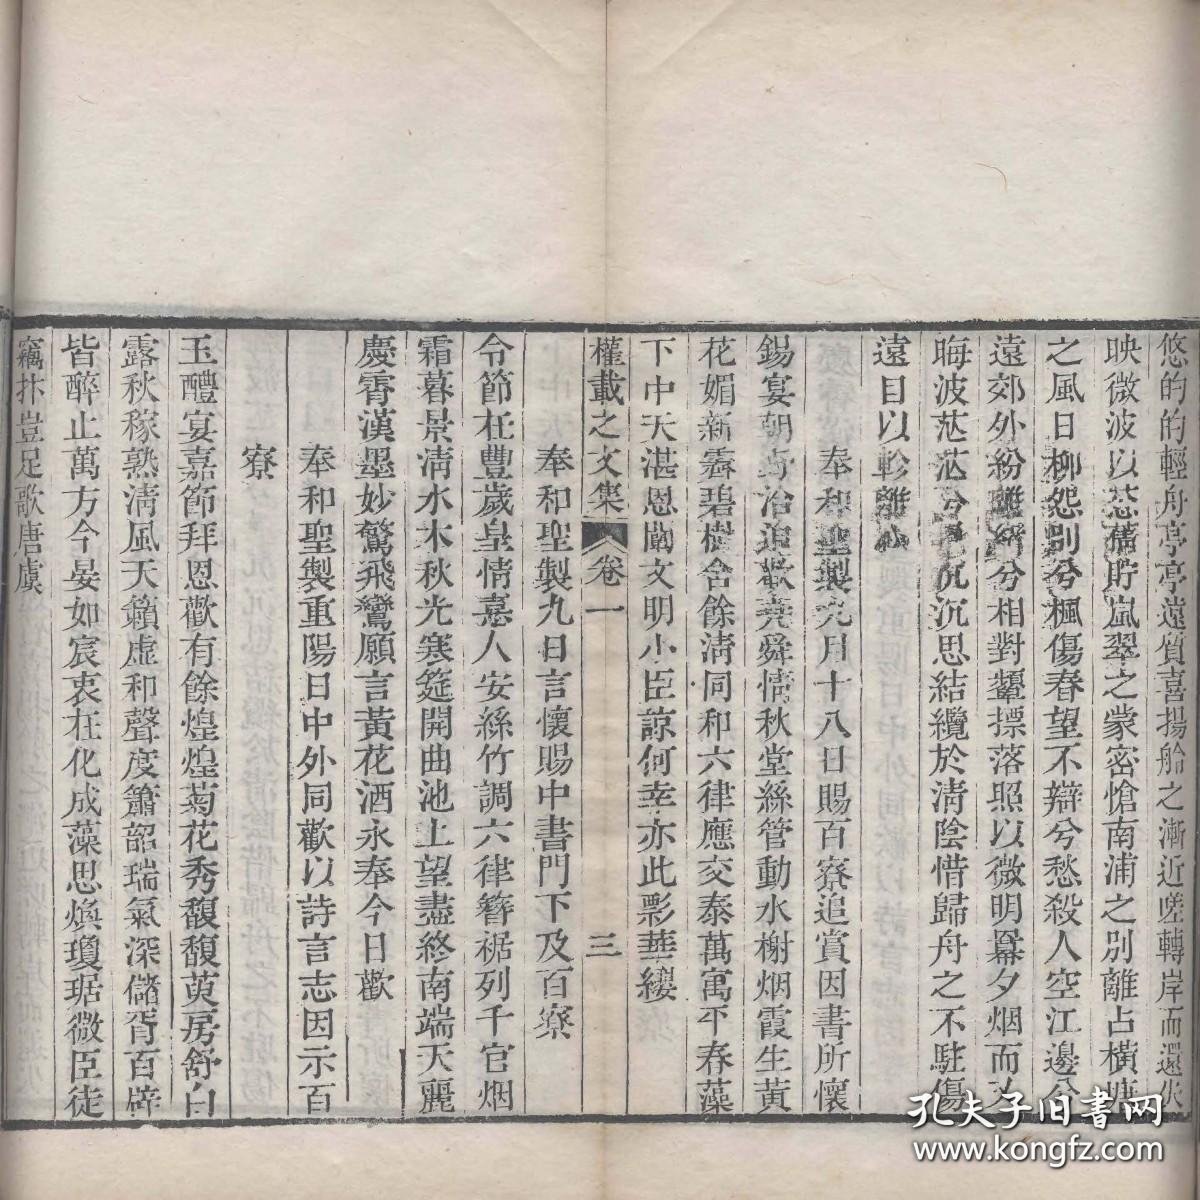 悠的的輕舟亭亭遠質喜揚舲之漸近嗟轉岸而還失
映微波以蕊蒨貯嵐翠之蒙密愴南浦之別離占橫塘
之風日柳怨別兮楓傷春望不辯兮愁殺人空江邊兮
遠郊外紛離兮相對顰摽落照以微明羃夕烟而
晦波茫茫兮沉沉思結纜於清陰惜歸舟之不駐傷
遠目以軫離心
奉和聖製九月十八日賜百寮追賞因書所懷
錫宴朝野洽追歡堯舜情秋堂絲管動水榭烟霞生黃
花媚新霽碧樹含餘清同和六律應交泰萬寓平春藻
下中天湛恩闡文明小臣諒何幸亦此影華纓
權載之文集 卷一 三
奉和聖製九日言懷賜中書門下及百寮
令節在豐歲皇情嘉人安絲竹調六律簪裾列千官烟
霜暮景清水木秋光寒筵開曲池上望盡終南端天麗
慶霄漢墨妙驚飛鸞願言黃花酒永奉今日歡
奉和聖製重陽日中外同歡以詩言志因示百
寮
玉醴宴嘉節拜恩歡有餘煌煌菊花秀馥馥萸房舒白
露秋稼熟清風天籟虛和聲度簫韶瑞氣深儲胥百辟
皆醉止萬方今晏如宸衷在化成藻思煥瓊琚微臣徒
竊抃豈足歌唐虞
孔夫子旧書网
www.kongfz.com